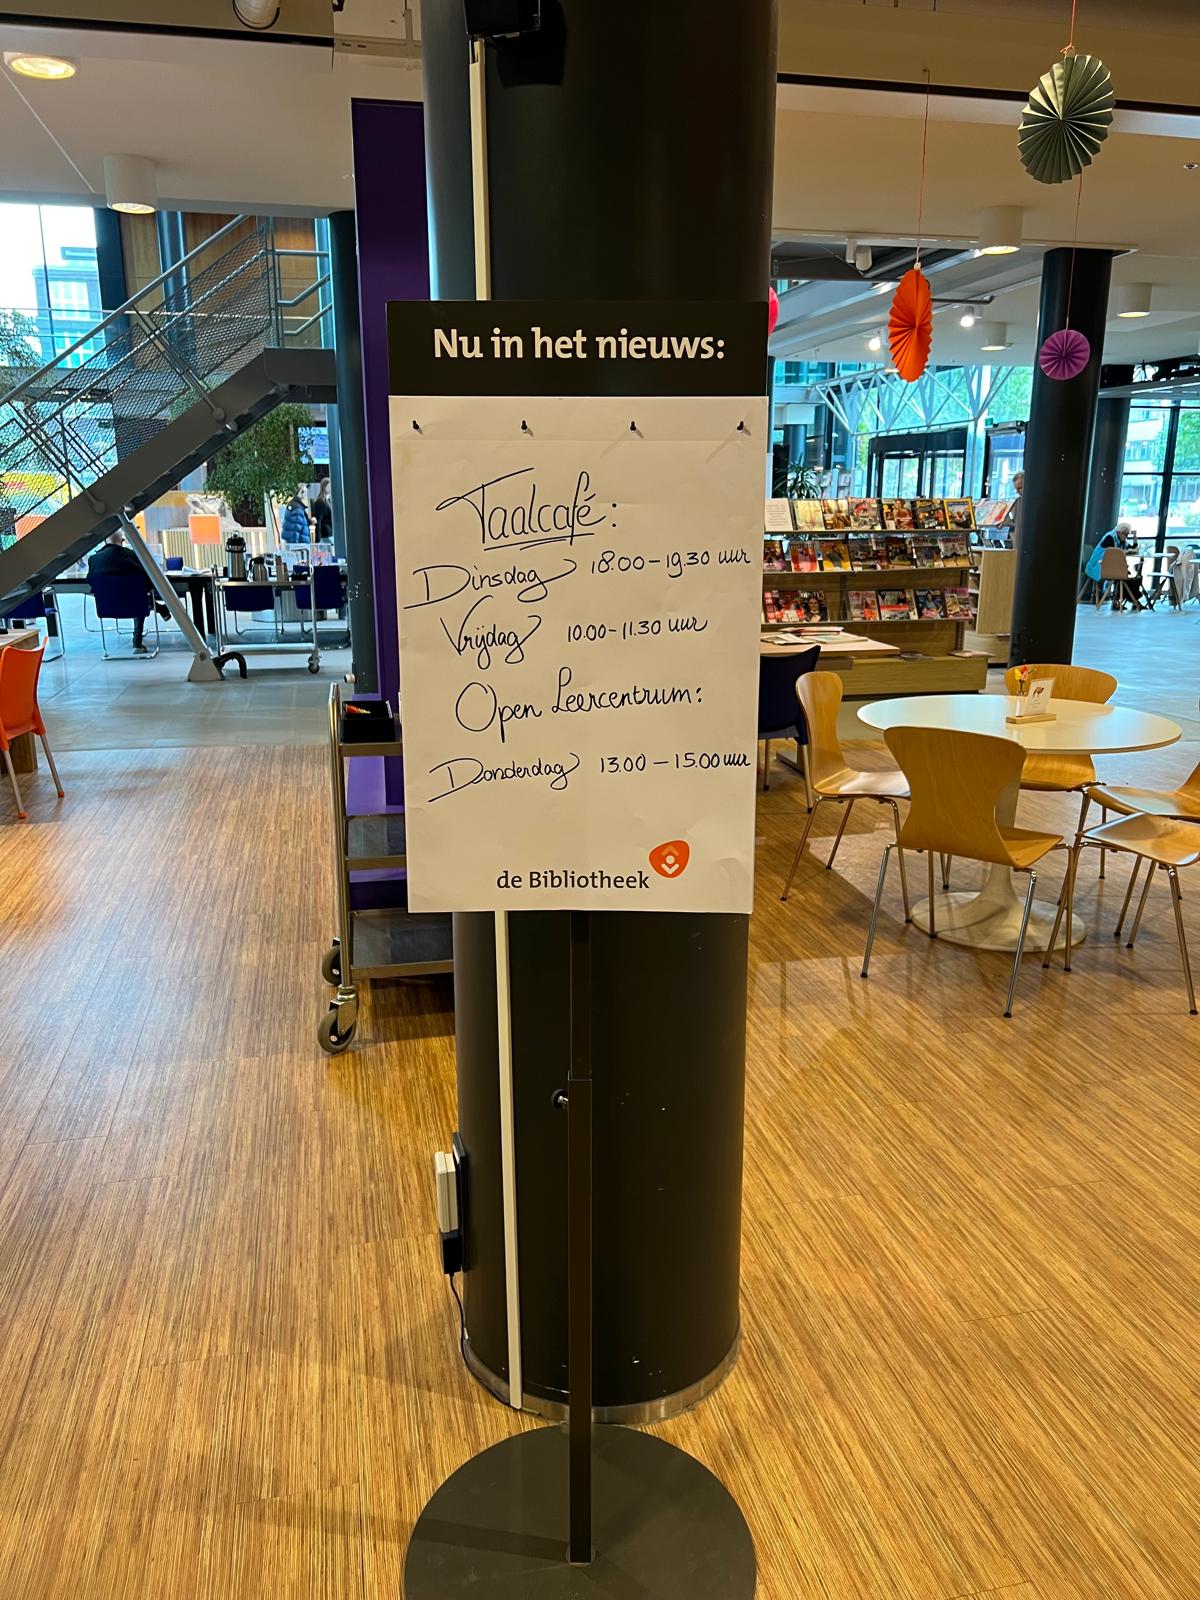 Nu in het nieuws:
Taalcafé:
Dinsdag 18.00-19.30 uur
Vrijdag 10.00-11.30 uur
Open Leercentrum:
Donderdag 13.00-15.00 uur
de Bibliotheek